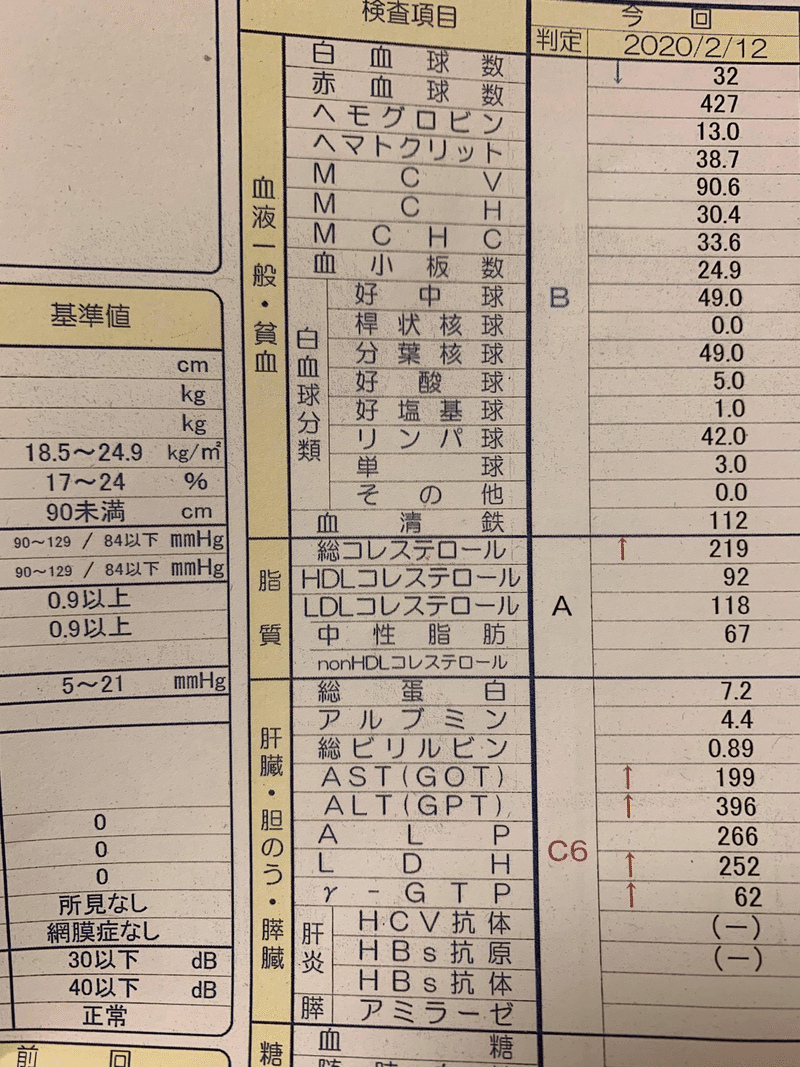 基準値
cm
kg
kg
18.5～24.9 kg/㎡
17～24 %
90未満 cm
90～129 / 84以下 mmHg
90～129 / 84以下 mmHg
0.9以上
0.9以上
5～21 mmHg
0
0
0
所見なし
網膜症なし
30以下 dB
40以下 dB
正常
前回
検査項目 今回
判定 2020/2/12
血液一般・貧血
B
白血球数 ↓ 32
赤血球数 427
ヘモグロビン 13.0
ヘマトクリット 38.7
MCV 90.6
MCH 30.4
MCHC 33.6
血小板数 24.9
白血球分類
好中球 49.0
桿状核球 0.0
分葉核球 49.0
好酸球 5.0
好塩基球 1.0
リンパ球 42.0
単球 3.0
その他 0.0
血清鉄 112
脂質
A
総コレステロール ↑ 219
HDLコレステロール 92
LDLコレステロール 118
中性脂肪 67
nonHDLコレステロール
肝臓・胆のう・膵臓
C6
総蛋白 7.2
アルブミン 4.4
総ビリルビン 0.89
AST(GOT) ↑ 199
ALT(GPT) ↑ 396
ALP 266
LDH ↑ 252
γ-GTP ↑ 62
肝炎
HCV抗体 (－)
HBs抗原 (－)
HBs抗体
膵 アミラーゼ
糖
血糖